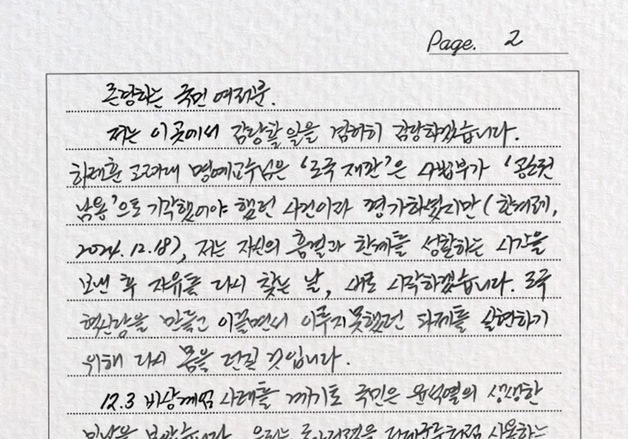 Page. 2
존경하는 국민 여러분.
저는 이곳에서 감당할 일을 겸허히 감당하겠습니다.
하태훈 고려대 명예교수님은 '조국 재판'은 사법부가 '공소권
남용'으로 기각했어야 했던 사건이라 평가하셨지만(한겨레,
2024.12.18), 저는 자신의 흠결과 한계를 성찰하는 시간을
보낸 후 자유를 다시 찾는 날, 새로 시작하겠습니다. 조국
혁신당을 만들고 이끌면서 이루지 못했던 과제를 실현하기
위해 다시 몸을 던질 것입니다.
12.3 비상계엄 사태를 계기로 국민은 윤석열의 생생한